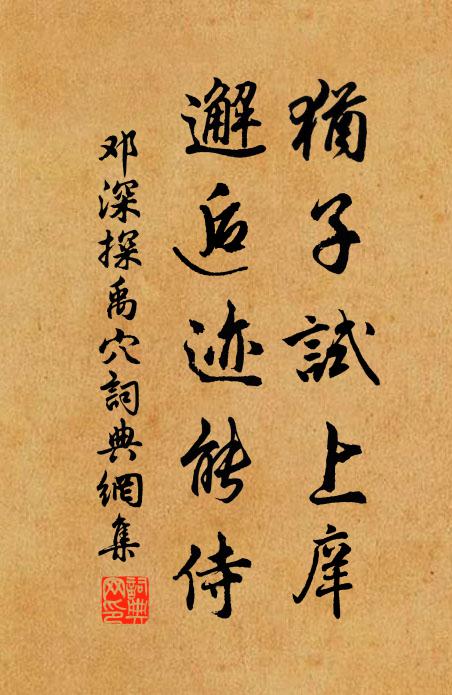 猶子試上庠
邂逅迹能侍
邓深探禹穴詞典網集
詞典网印